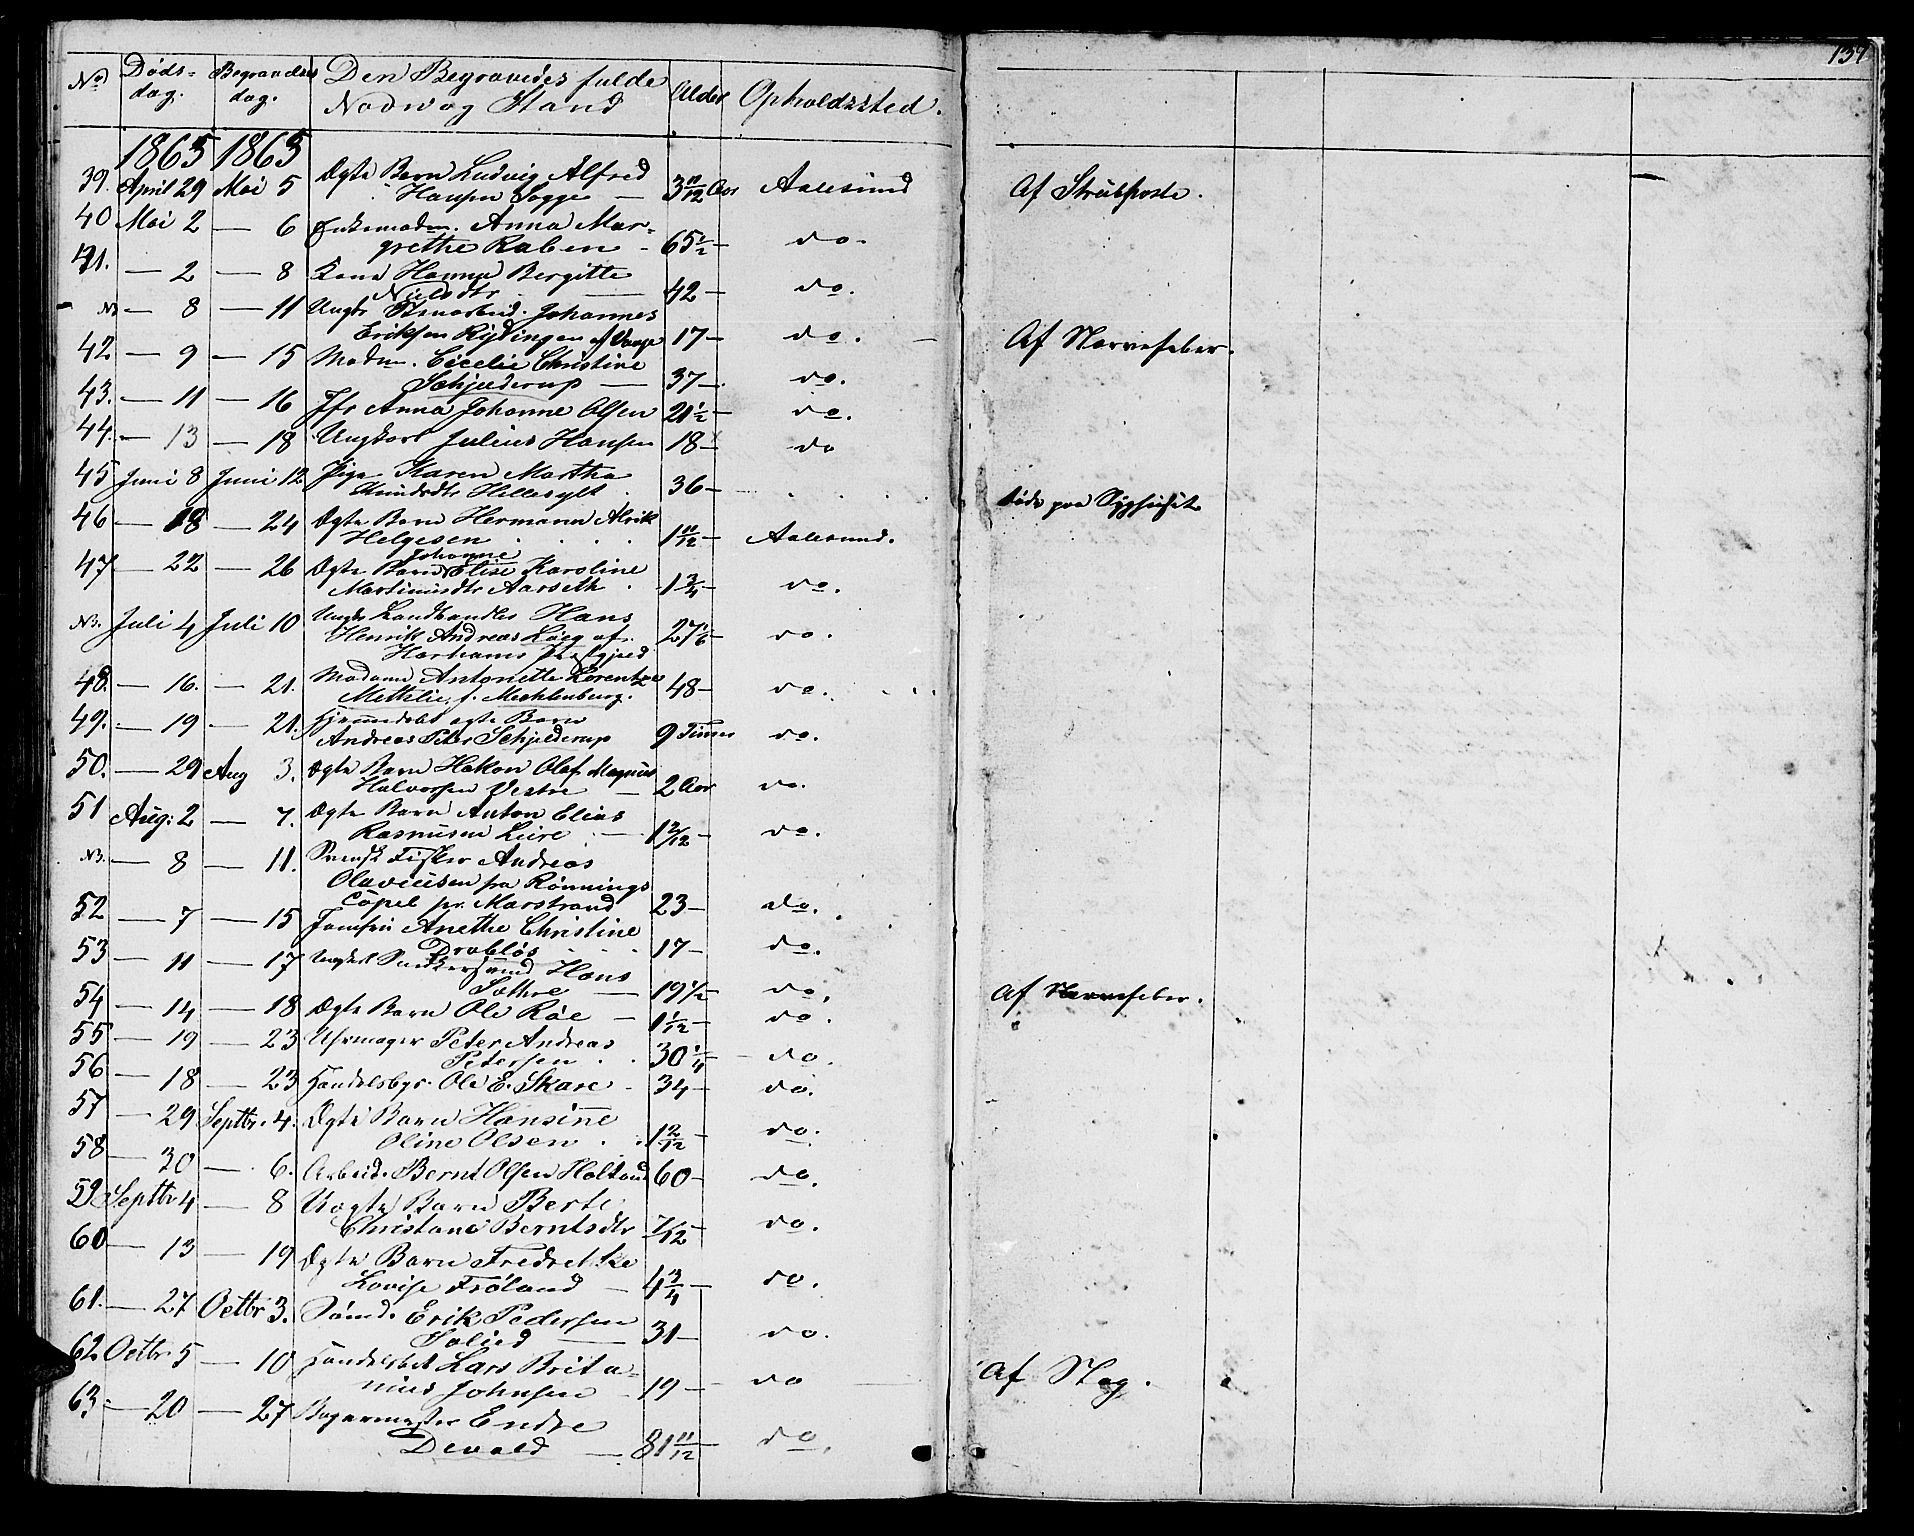 137
No Døds- Begravelses Den Begravedes fulde Alder Opholdssted.
dag. dag. Navn og Stand
1865 1865
39. April 29 Mai 5 Ægte Barn Ludvig Alfred
Hansen Sogge — 3 11/12 Aar Aalesund Af Strubhoste.
40 Mai 2 — 6 Enkemadm. Anna Mar-
grethe Raben — 65 1/2 — do.
41. — 2 — 8 Kone Hanna Bergitte
Nielsdtr — 42 — do.
NB — 8 — 11 Ungk. Johannes
Eriksen 17 — do. Af Nervefeber.
42 — 9 — 15 Madm. Cicelie Christine
Schjelderup — 37 — do.
43. — 11 — 16 Jfr Anna Johanne Olsen 21 1/2 — do.
44. — 13 — 18 Ungkarl Julius Hansen 18 — do
45 Juni 8 Juni 12 Pige Karen Martha
Knudsdtr Hellesylt 36 — døde paa Sygehuset
46 — 18 — 24 Ægte Barn Hermann Alrik
Helgesen 1 11/12 — Aalesund.
Johanne
47 — 22 — 26 Ægte Barn Elise Karoline
Martinusdtr Aarseth 1 3/4 — do.
NB. Juli 4 Juli 10 Ungk. Landhandler Hans
Henrik Andreas af
Harhams Præstgjeld 27 1/6 — do.
48. — 16. — 21. Madame Antonette Lorentze
Mettelie, f. Mechlenburg. 48 — do.
49. — 19 — 21. Hjemmedøbt ægte Barn
Andreas Peter Schjelderup 9 Timer do.
50. — 29 Aug 3. Ægte Barn Hakon Olaf Magnus
Halvorsen Vestre — 2 Aar do.
51 Aug: 2 — 7. Ægte Barn Anton Elias
Rasmusen — 1 2/12 — do.
NB. — 8 — 11. Svensk Fisker Andreas
Olaviusen fra Rønnings
Capel pr. Marstrand 23 — do.
52 — 7 — 15 Jomfru Anethe Christine
Drabløs 17 — do.
53 — 11 — 17 Ungkarl Hans
Sæthre — 19 1/2 — do. Af Nervefeber.
54 — 14 — 18 Ægte Barn Ole Röe — 1 1/12 — do.
55 — 19 — 23 Uhrmager Peter Andreas
Petersen 30 1/4 — do.
56 — 18 — 23 Handelsbgr. Ole E. Skare 34 — do.
57 — 29 Septbr. 4. Ægte Barn Hansine
Oline Olsen 1 2/12 — do.
58 — 30 — 6. Arbeid. Bernt Olsen 60 — do.
59 Septbr 4 — 8 Uægte Barn Berte
Christane Berntsdtr 7/12 — do.
60 — 13 — 19 Ægte Barn Fredrekke
Lovise Frøland — 4 3/4 — do.
61. — 27 Octbr 3. Sømd. Erik Pedersen
Solied — 31 — do.
62 Octbr. 5 — 10 Handelsbet. Lars Brita-
nius Johnsen — 19 — do Af Slag.
63. — 20 — 27 Bagermester Endre
Devold — 81 11/12 — do.